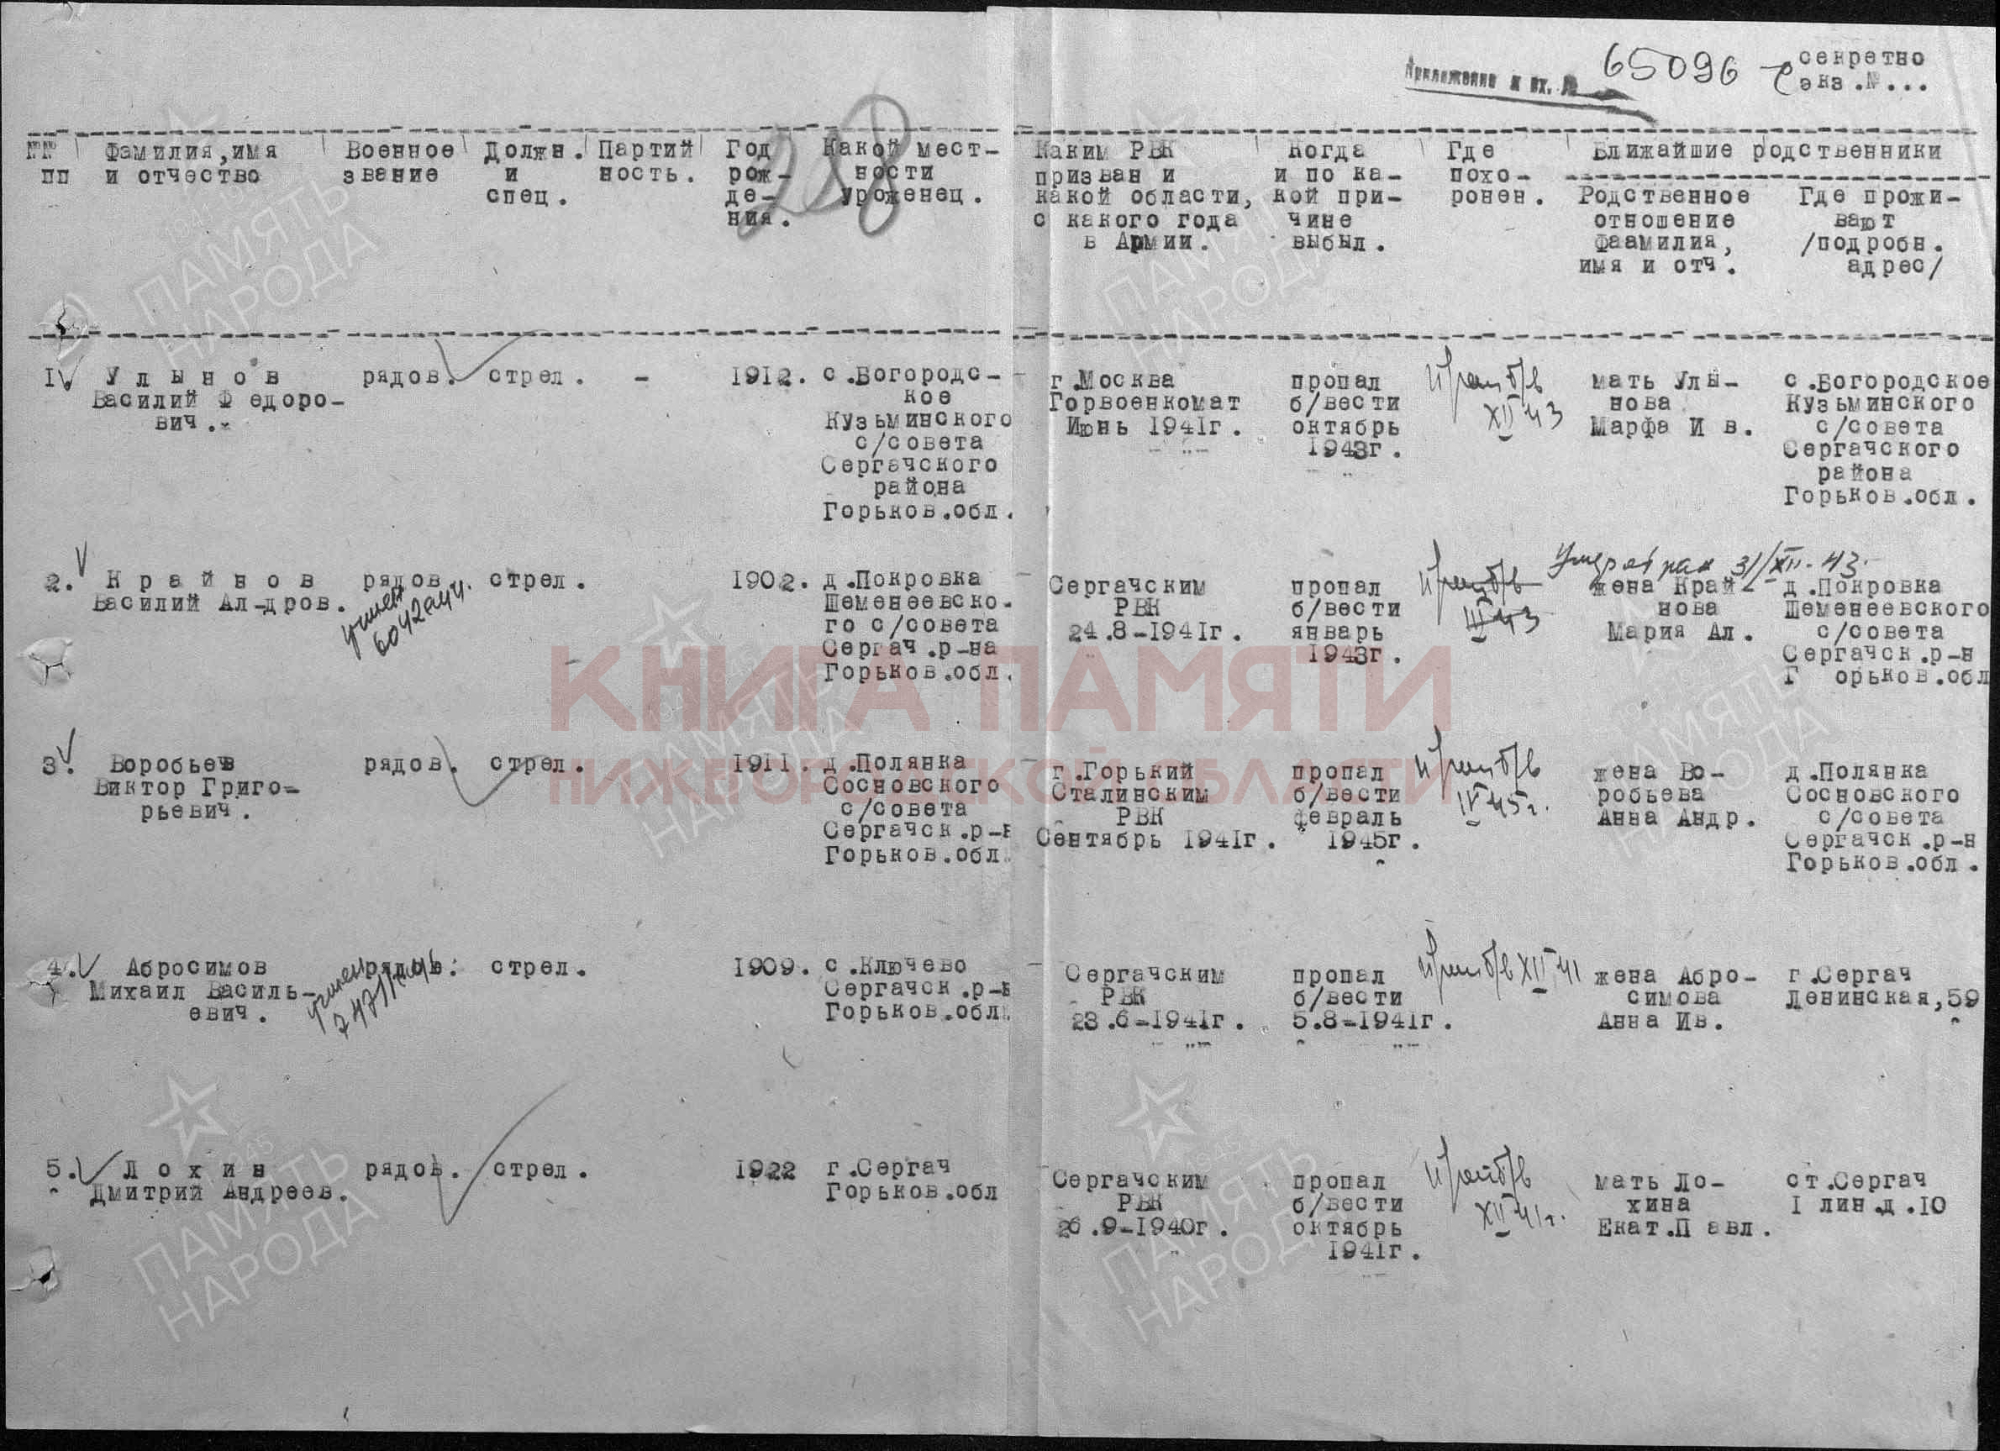 Приложение к вх. № 65096
секретно
экз.№...
288
№№ пп
Фамилия,имя и отчество
Военное звание
Должн. и спец.
Партийность.
Год рож- де- ния.
Какой мест- ности уроженец.
Каким РВК призван и какой области, с какого года в Армии.
Когда и по ка- кой при- чине выбыл.
Где похо- ронен.
Ближайшие родственники
Родственное отношение фаамилия, имя и отч.
Где прожи- вают /подробн. адрес/
1. Улынов рядов. стрел. - 1912. с.Богородс- г.Москва пропал мать Улы- с.Богородское
Василий Федоро- кое Горвоенкомат б/вести нова Кузьминского
вич. Кузьминского Июнь 1941г. октябрь Марфа Ив. с/совета
с/совета 1943г. XII 43 Сергачского
Сергачского района
района Горьков.обл.
Горьков.обл.
31/XII-43
2. Крайнов рядов. стрел. 1902. д.Покровка Сергачским пропал жена Край д.Покровка
Василий Ал-дров. Шеменеевско- РВК б/вести нова Шеменеевского
го с/совета 24.8-1941г. январь III 43 Мария Ал. с/совета
Сергач.р-на 1943г. Сергачск.р-н
Горьков.обл. Горьков.обл
3. Воробьев рядов. стрел. 1911. д.Полянка г.Горький пропал жена Во- д.Полянка
Виктор Григо- Сосновского Сталинским б/вести робьева Сосновского
рьевич. с/совета РВК февраль IV 45г. Анна Андр. с/совета
Сергачск.р-н Сентябрь 1941г. 1945г. Сергачск.р-н
Горьков.обл. Горьков.обл.
4. Абросимов рядов. стрел. 1909. с.Ключево Сергачским пропал XII 41 жена Абро- г.Сергач
Михаил Василь- Сергачск.р-н РВК б/вести симова Ленинская,59
евич. Горьков.обл. 23.6-1941г. 5.8-1941г. Анна Ив.
5. Лохин рядов. стрел. 1922 г.Сергач Сергачским пропал мать Ло- ст.Сергач
Дмитрий Андреев. Горьков.обл РВК б/вести хина 1 лин.д.10
26.9-1940г. октябрь XII 41г. Екат.Павл.
1941г.
КНИГА ПАМЯТИ
НИЖЕГОРОДСКОЙ ОБЛАСТИ
ПАМЯТЬ НАРОДА